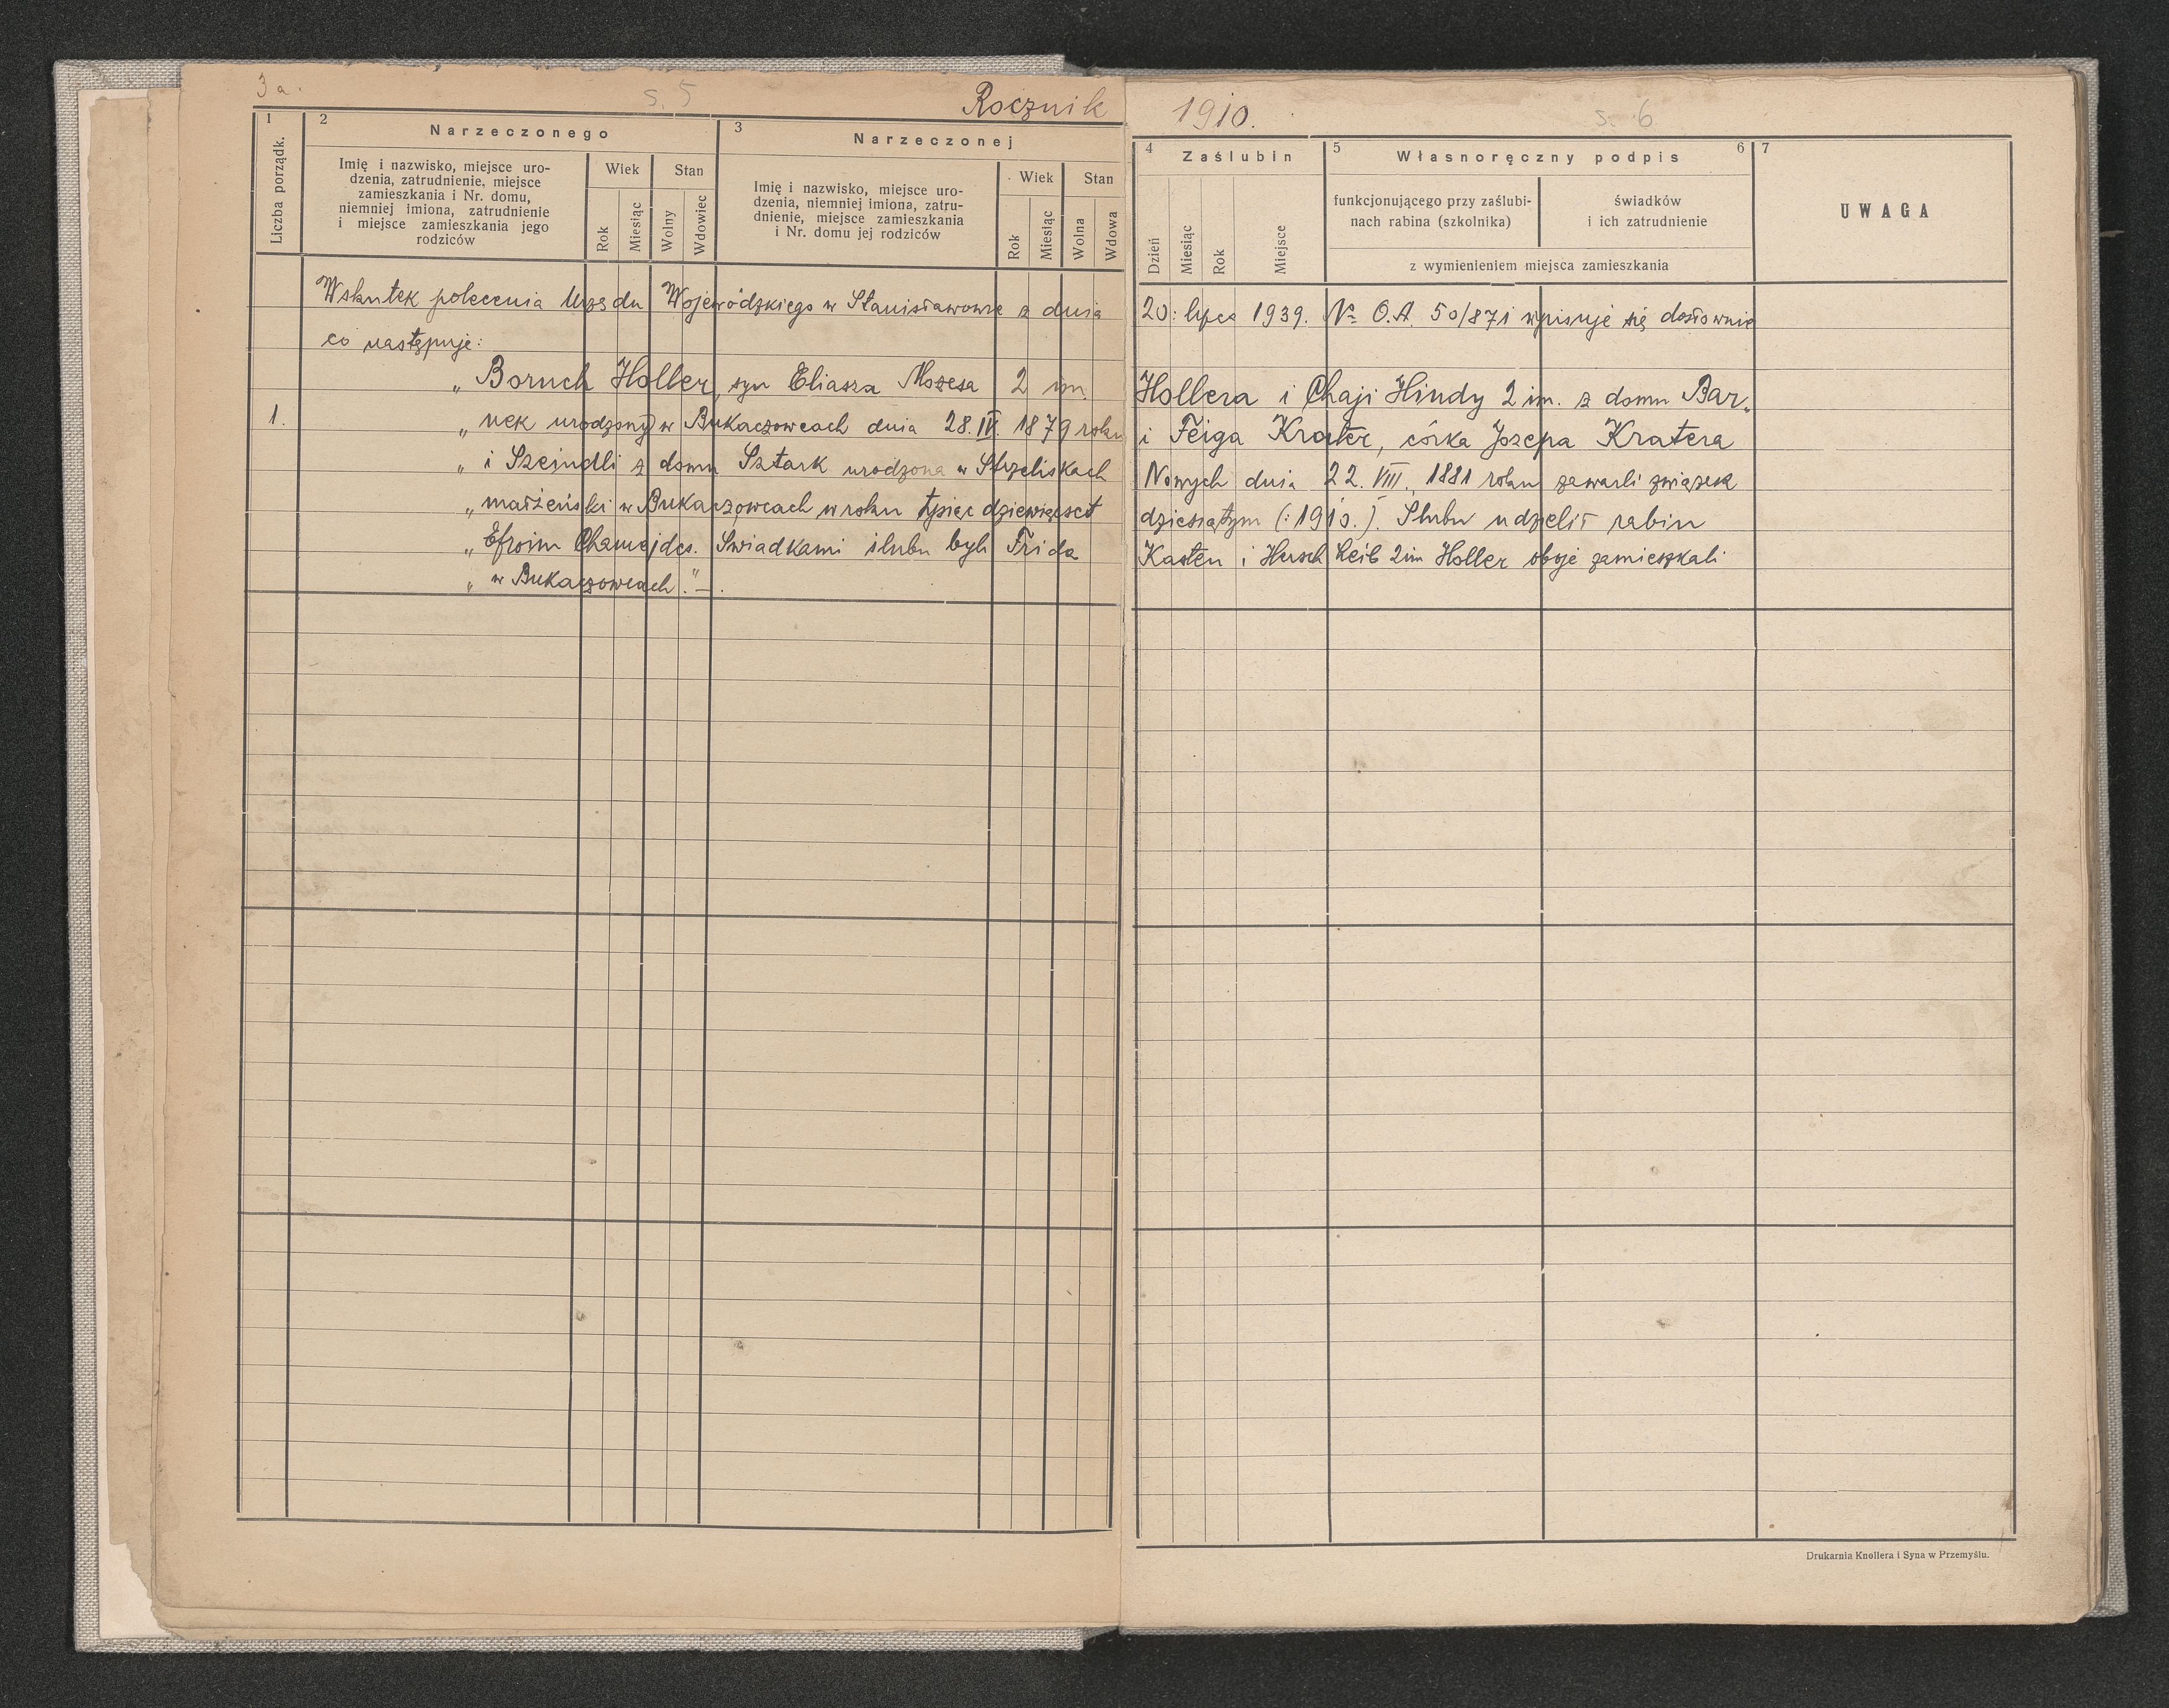 3a.
s. 5
Rocznik
1
2
Narzeczonego
3
Narzeczonej
Liczba porządk.
Imię i nazwisko, miejsce uro-
dzenia, zatrudnienie, miejsce
zamieszkania i Nr. domu,
niemniej imiona, zatrudnienie
i miejsce zamieszkania jego
rodziców
Wiek
Stan
Rok
Miesiąc
Wolny
Wdowiec
Imię i nazwisko, miejsce uro-
dzenia, niemniej imiona, zatru-
dnienie, miejsce zamieszkania
i Nr. domu jej rodziców
Wiek
Stan
Rok
Miesiąc
Wolna
Wdowa
Wskutek polecenia Urzędu Wojewódzkiego w Stanisławowie z dnia
co następuje:
„ Boruch Holler, syn Eliasza Mozesa 2 im.
1.
„ nek urodzony w Bukaczowcach dnia 28. IV. 1879 roku
„ i Szejndli z domu Sztark urodzona w Strzeliskach
„ małżeński w Bukaczowcach w roku tysiąc dziewięćset
„ Efroim Chamejdes. Świadkami ślubu byli Frida
„ w Bukaczowcach." —.
1910.
s. 6
4
Zaślubin
5
Własnoręczny podpis
6
7
Dzień
Miesiąc
Rok
Miejsce
funkcjonującego przy zaślubi-
nach rabina (szkolnika)
świadków
i ich zatrudnienie
z wymienieniem miejsca zamieszkania
UWAGA
20: lipca 1939. № O.A. 50/871 wpisuje się dosłownie
Hollera i Chaji Hindy 2 im. z domu Bar„
i Feiga Krater, córka Jozepa Kratera
Nowych dnia 22. VIII. 1881 roku zawarli związek
dziesiątym (: 1910.). Slubu udzielił rabin
Kasten i Hersch Leib 2im Holler oboje zamieszkali
Drukarnia Knollera i Syna w Przemyślu.